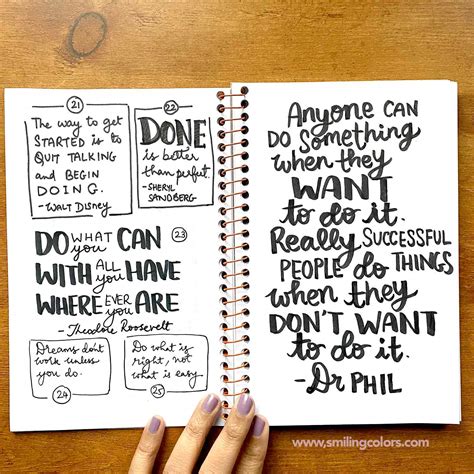 21
The way to get
STARTED is to
QUIT TALKING
and BEGIN
DOING.
- WALT DISNEY
22
DONE
is better
than perfect.
- SHERYL
SANDBERG
23
DO WHAT you CAN
WITH ALL you HAVE
WHERE EVER you ARE
- Theodore Roosevelt
Dreams don't
work unless
you do.
24
Do what is
right, not
what is easy.
25
Anyone CAN
DO Something
when they
WANT
to do it.
Really SUCCESSFUL
PEOPLE do THINGS
when they
DON'T WANT
to do it.
- Dr PHIL
www.smilingcolors.com